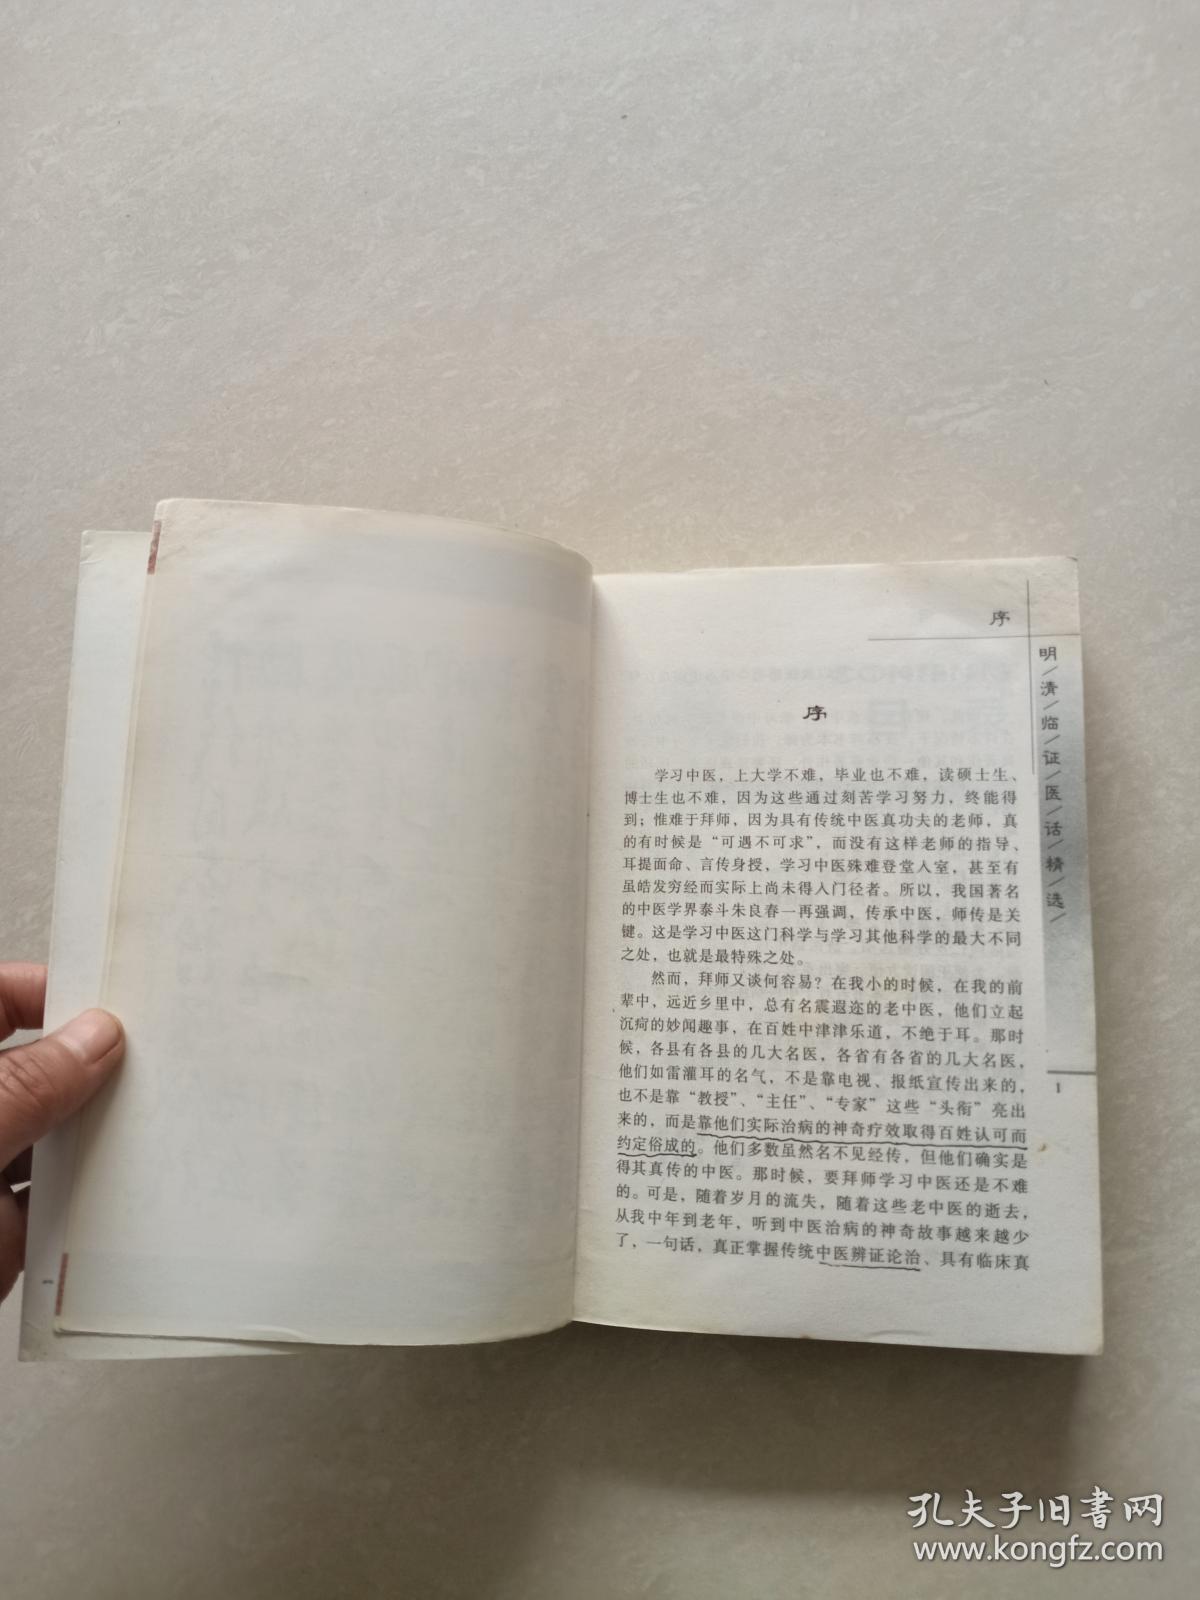 序
明/清/临/证/医/话/精/选/
序
学习中医，上大学不难，毕业也不难，读硕士生、
博士生也不难，因为这些通过刻苦学习努力，终能得
到；惟难于拜师，因为具有传统中医真功夫的老师，真
的有时候是“可遇不可求”，而没有这样老师的指导、
耳提面命、言传身授，学习中医殊难登堂入室，甚至有
虽皓发穷经而实际上尚未得入门径者。所以，我国著名
的中医学界泰斗朱良春一再强调，传承中医，师传是关
键。这是学习中医这门科学与学习其他科学的最大不同
之处，也就是最特殊之处。
然而，拜师又谈何容易？在我小的时候，在我的前
辈中，远近乡里中，总有名震遐迩的老中医，他们立起
沉疴的妙闻趣事，在百姓中津津乐道，不绝于耳。那时
候，各县有各县的几大名医，各省有各省的几大名医，
他们如雷灌耳的名气，不是靠电视、报纸宣传出来的，
也不是靠“教授”、“主任”、“专家”这些“头衔”亮出
来的，而是靠他们实际治病的神奇疗效取得百姓认可而
约定俗成的。他们多数虽然名不见经传，但他们确实是
得其真传的中医。那时候，要拜师学习中医还是不难
的。可是，随着岁月的流失，随着这些老中医的逝去，
从我中年到老年，听到中医治病的神奇故事越来越少
了，一句话，真正掌握传统中医辨证论治、具有临床真
1
孔夫子旧书网
www.kongfz.com